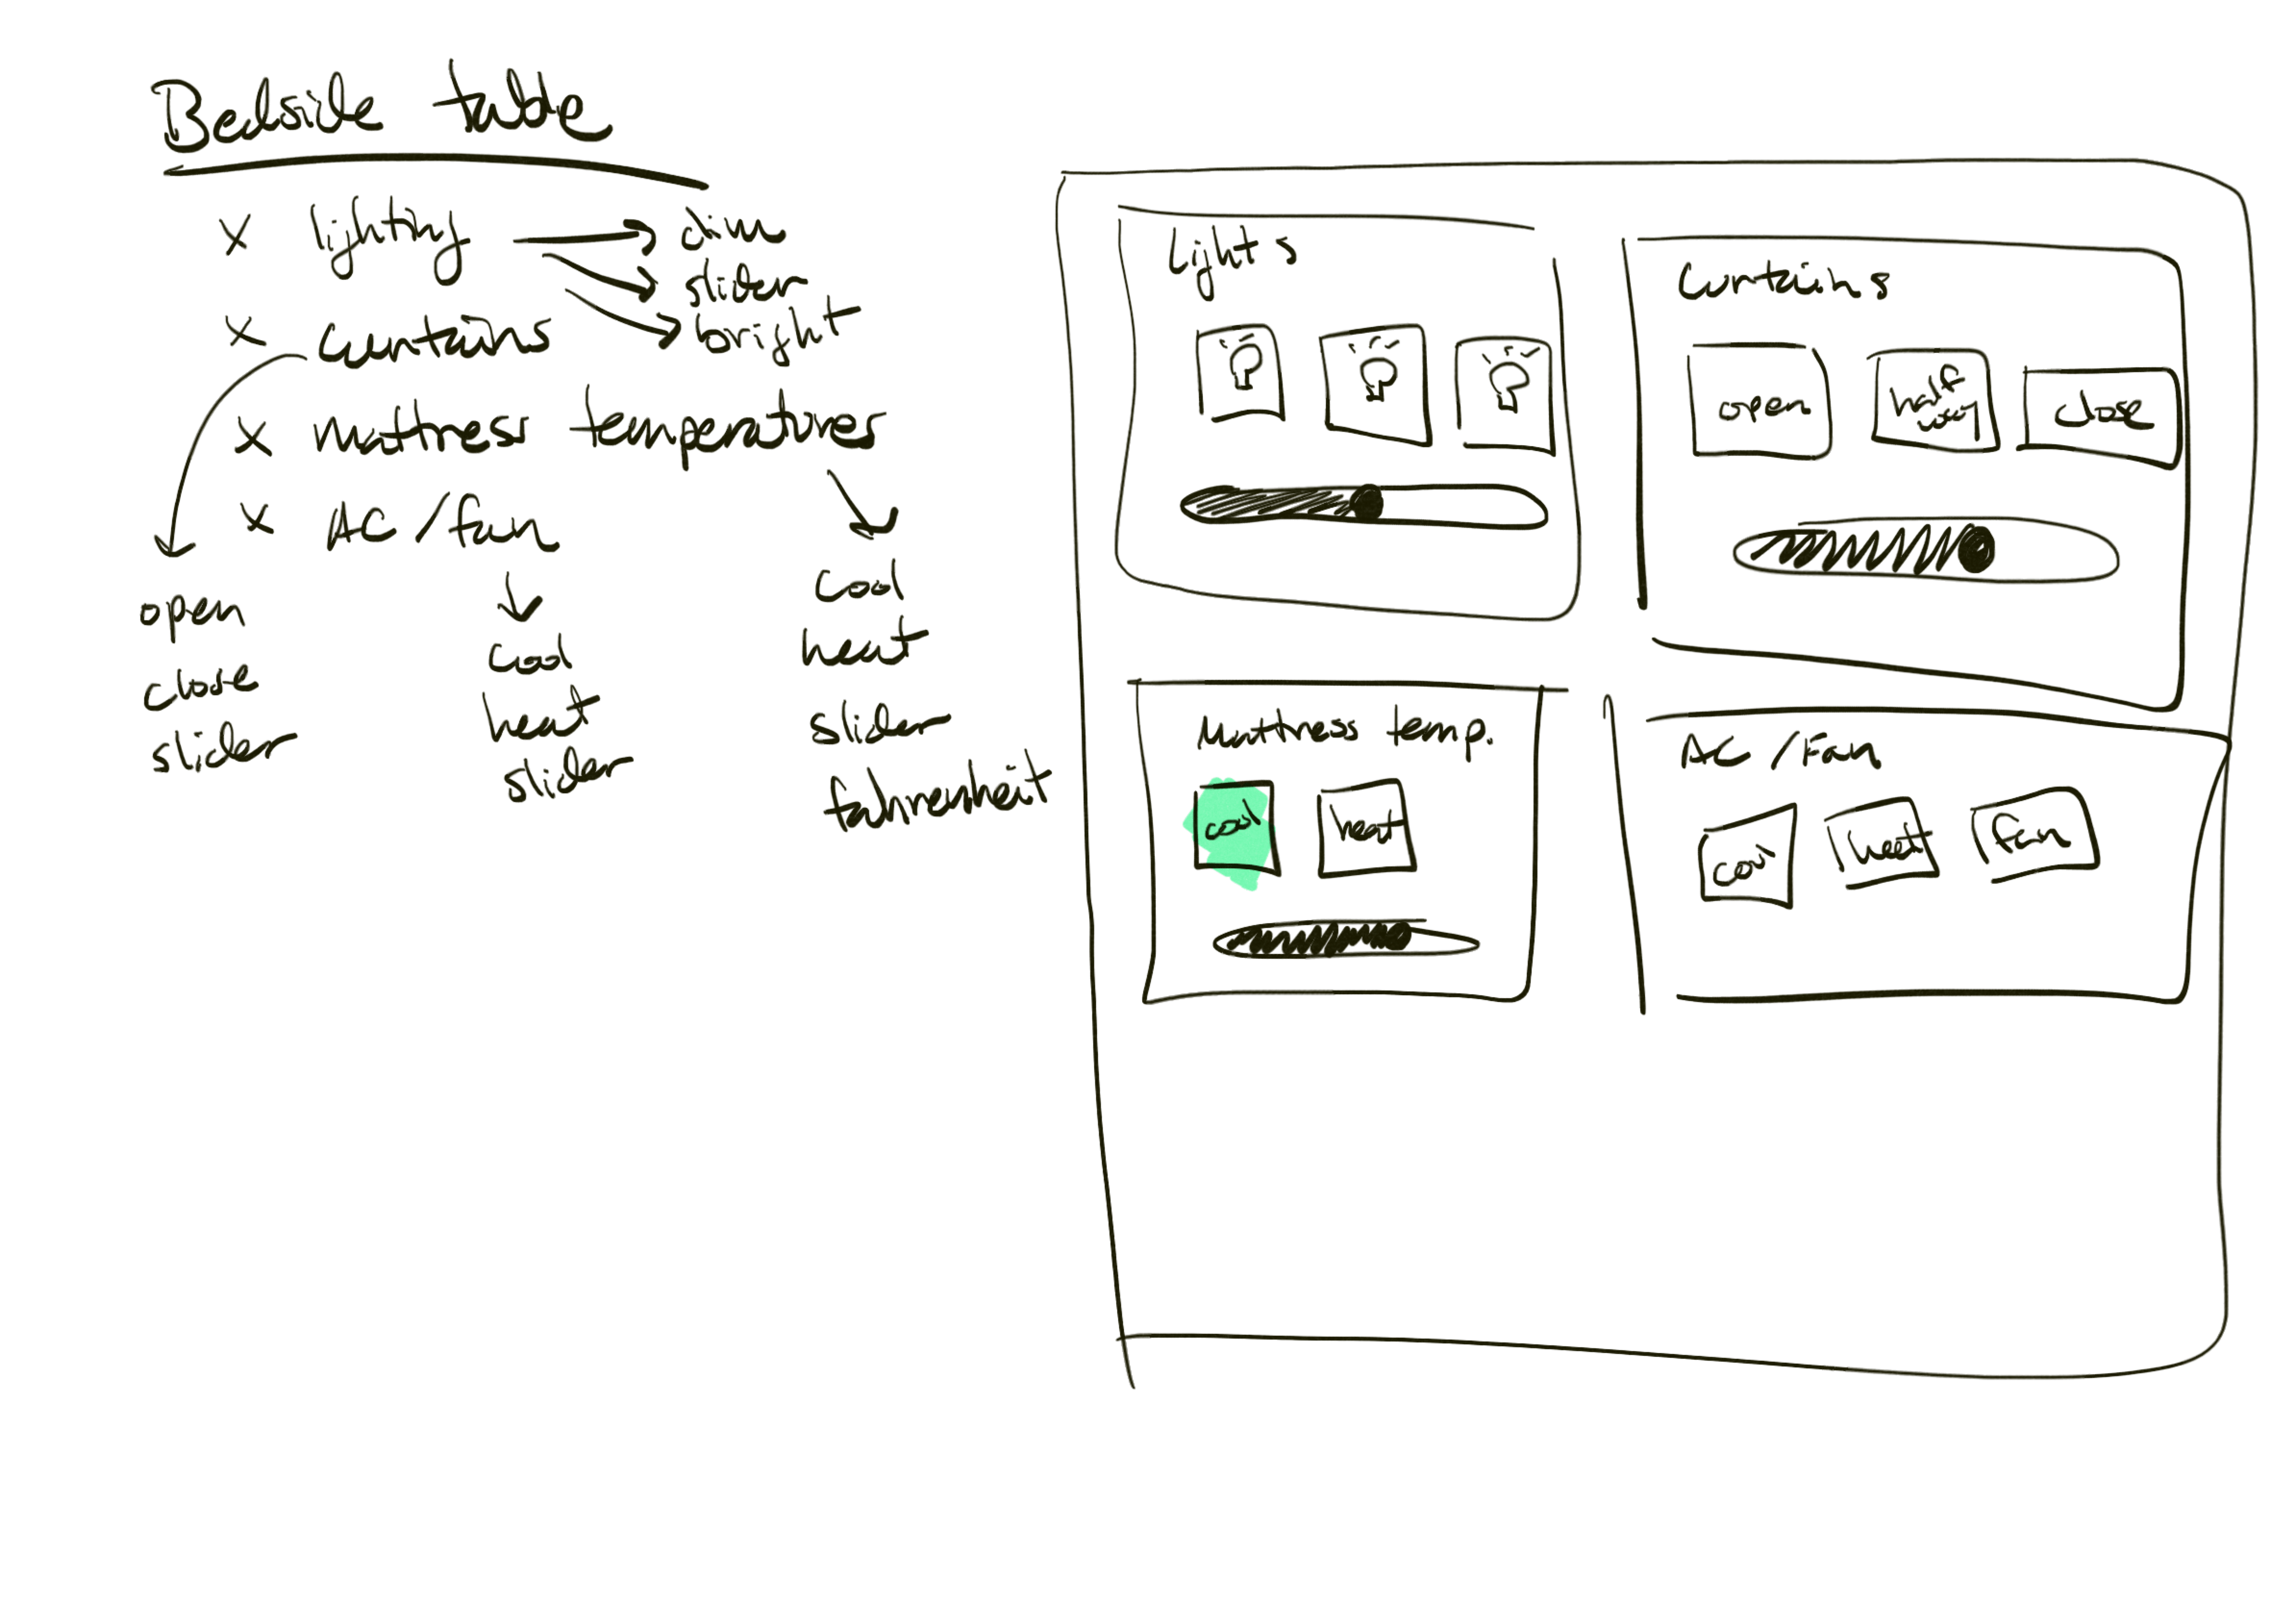 Bedside table
x lighting
dim
slider
bright
x curtains
x mattress temperatures
x AC / fan
open
close
slider
cool
heat
slider
cool
heat
slider
fahrenheit
Lights
Curtains
open
half
way
close
Mattress temp.
cool
heat
AC / Fan
cool
heat
fan